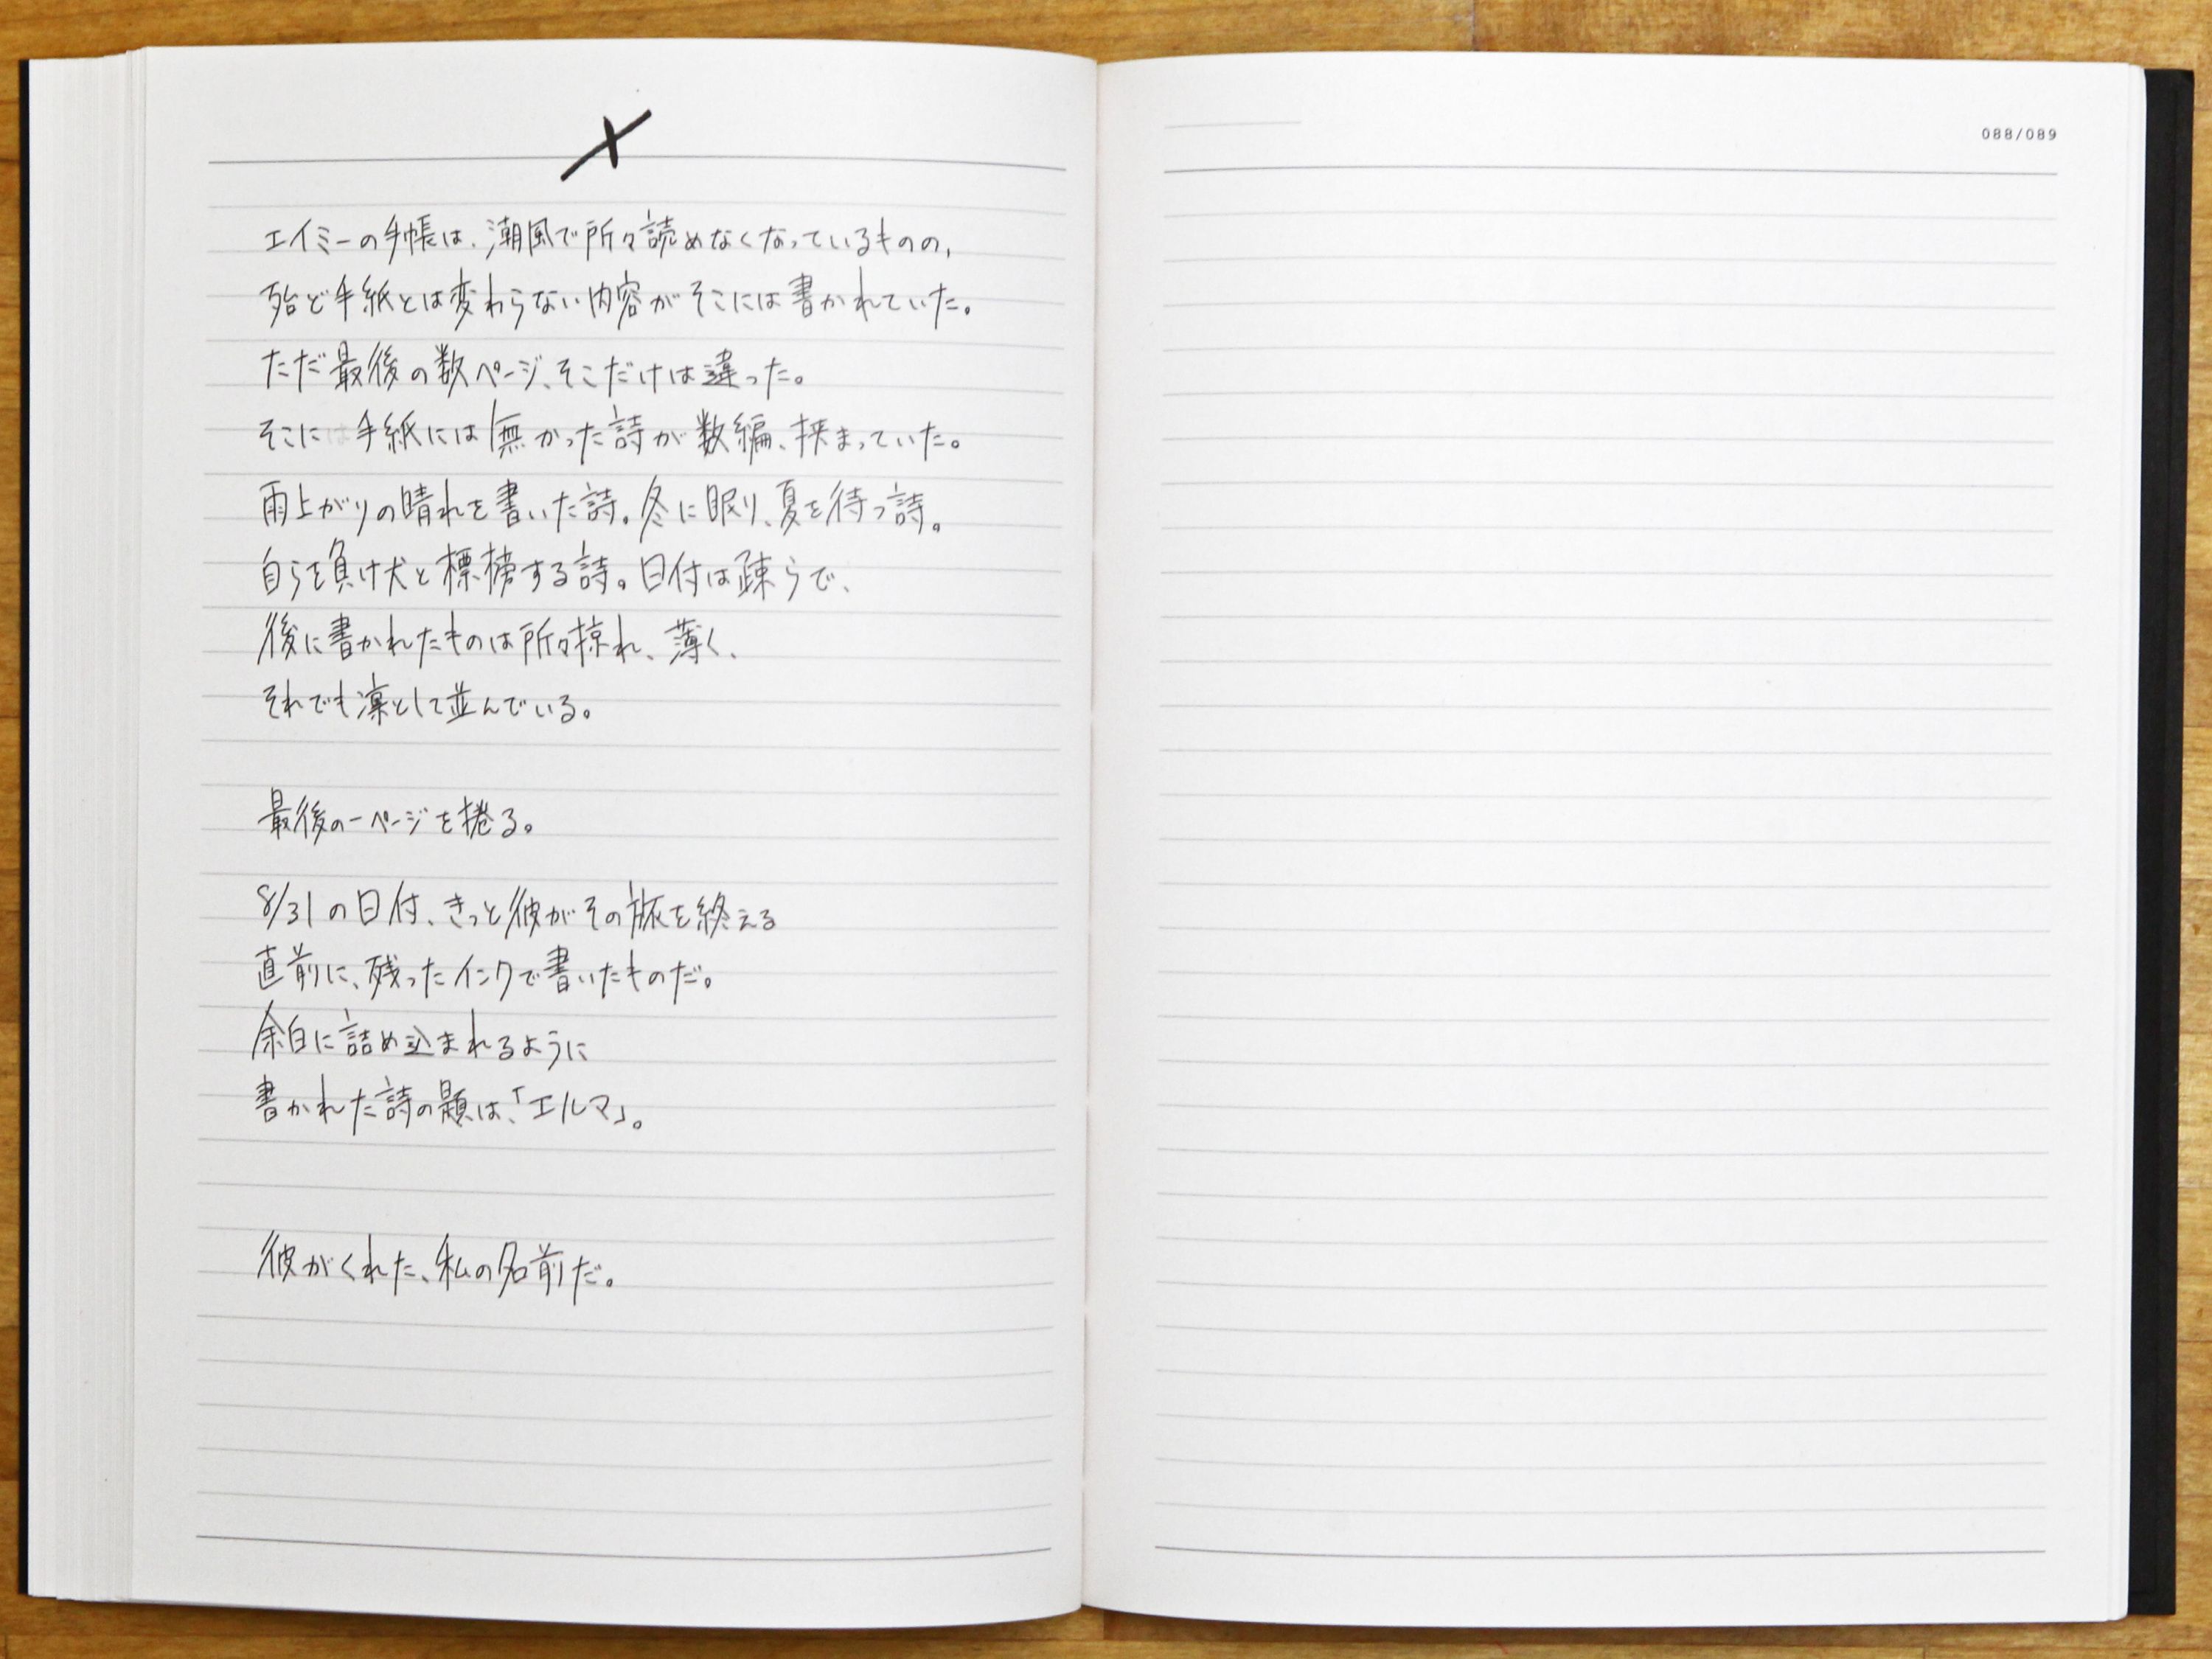 エイミーの手帳は、潮風で所々読めなくなっているものの、
殆ど手紙とは変わらない内容がそこには書かれていた。
ただ最後の数ページ、そこだけは違った。
そこには手紙には無かった詩が数編、挟まっていた。
雨上がりの晴れを書いた詩。冬に眠り、夏を待つ詩。
自らを負け犬と標榜する詩。日付は疎らで、
後に書かれたものは所々掠れ、薄く、
それでも凛として並んでいる。
最後の一ページを捲る。
8/31の日付、きっと彼がその旅を終える
直前に、残ったインクで書いたものだ。
余白に詰め込まれるように
書かれた詩の題は、「エルマ」。
彼がくれた、私の名前だ。
088/089